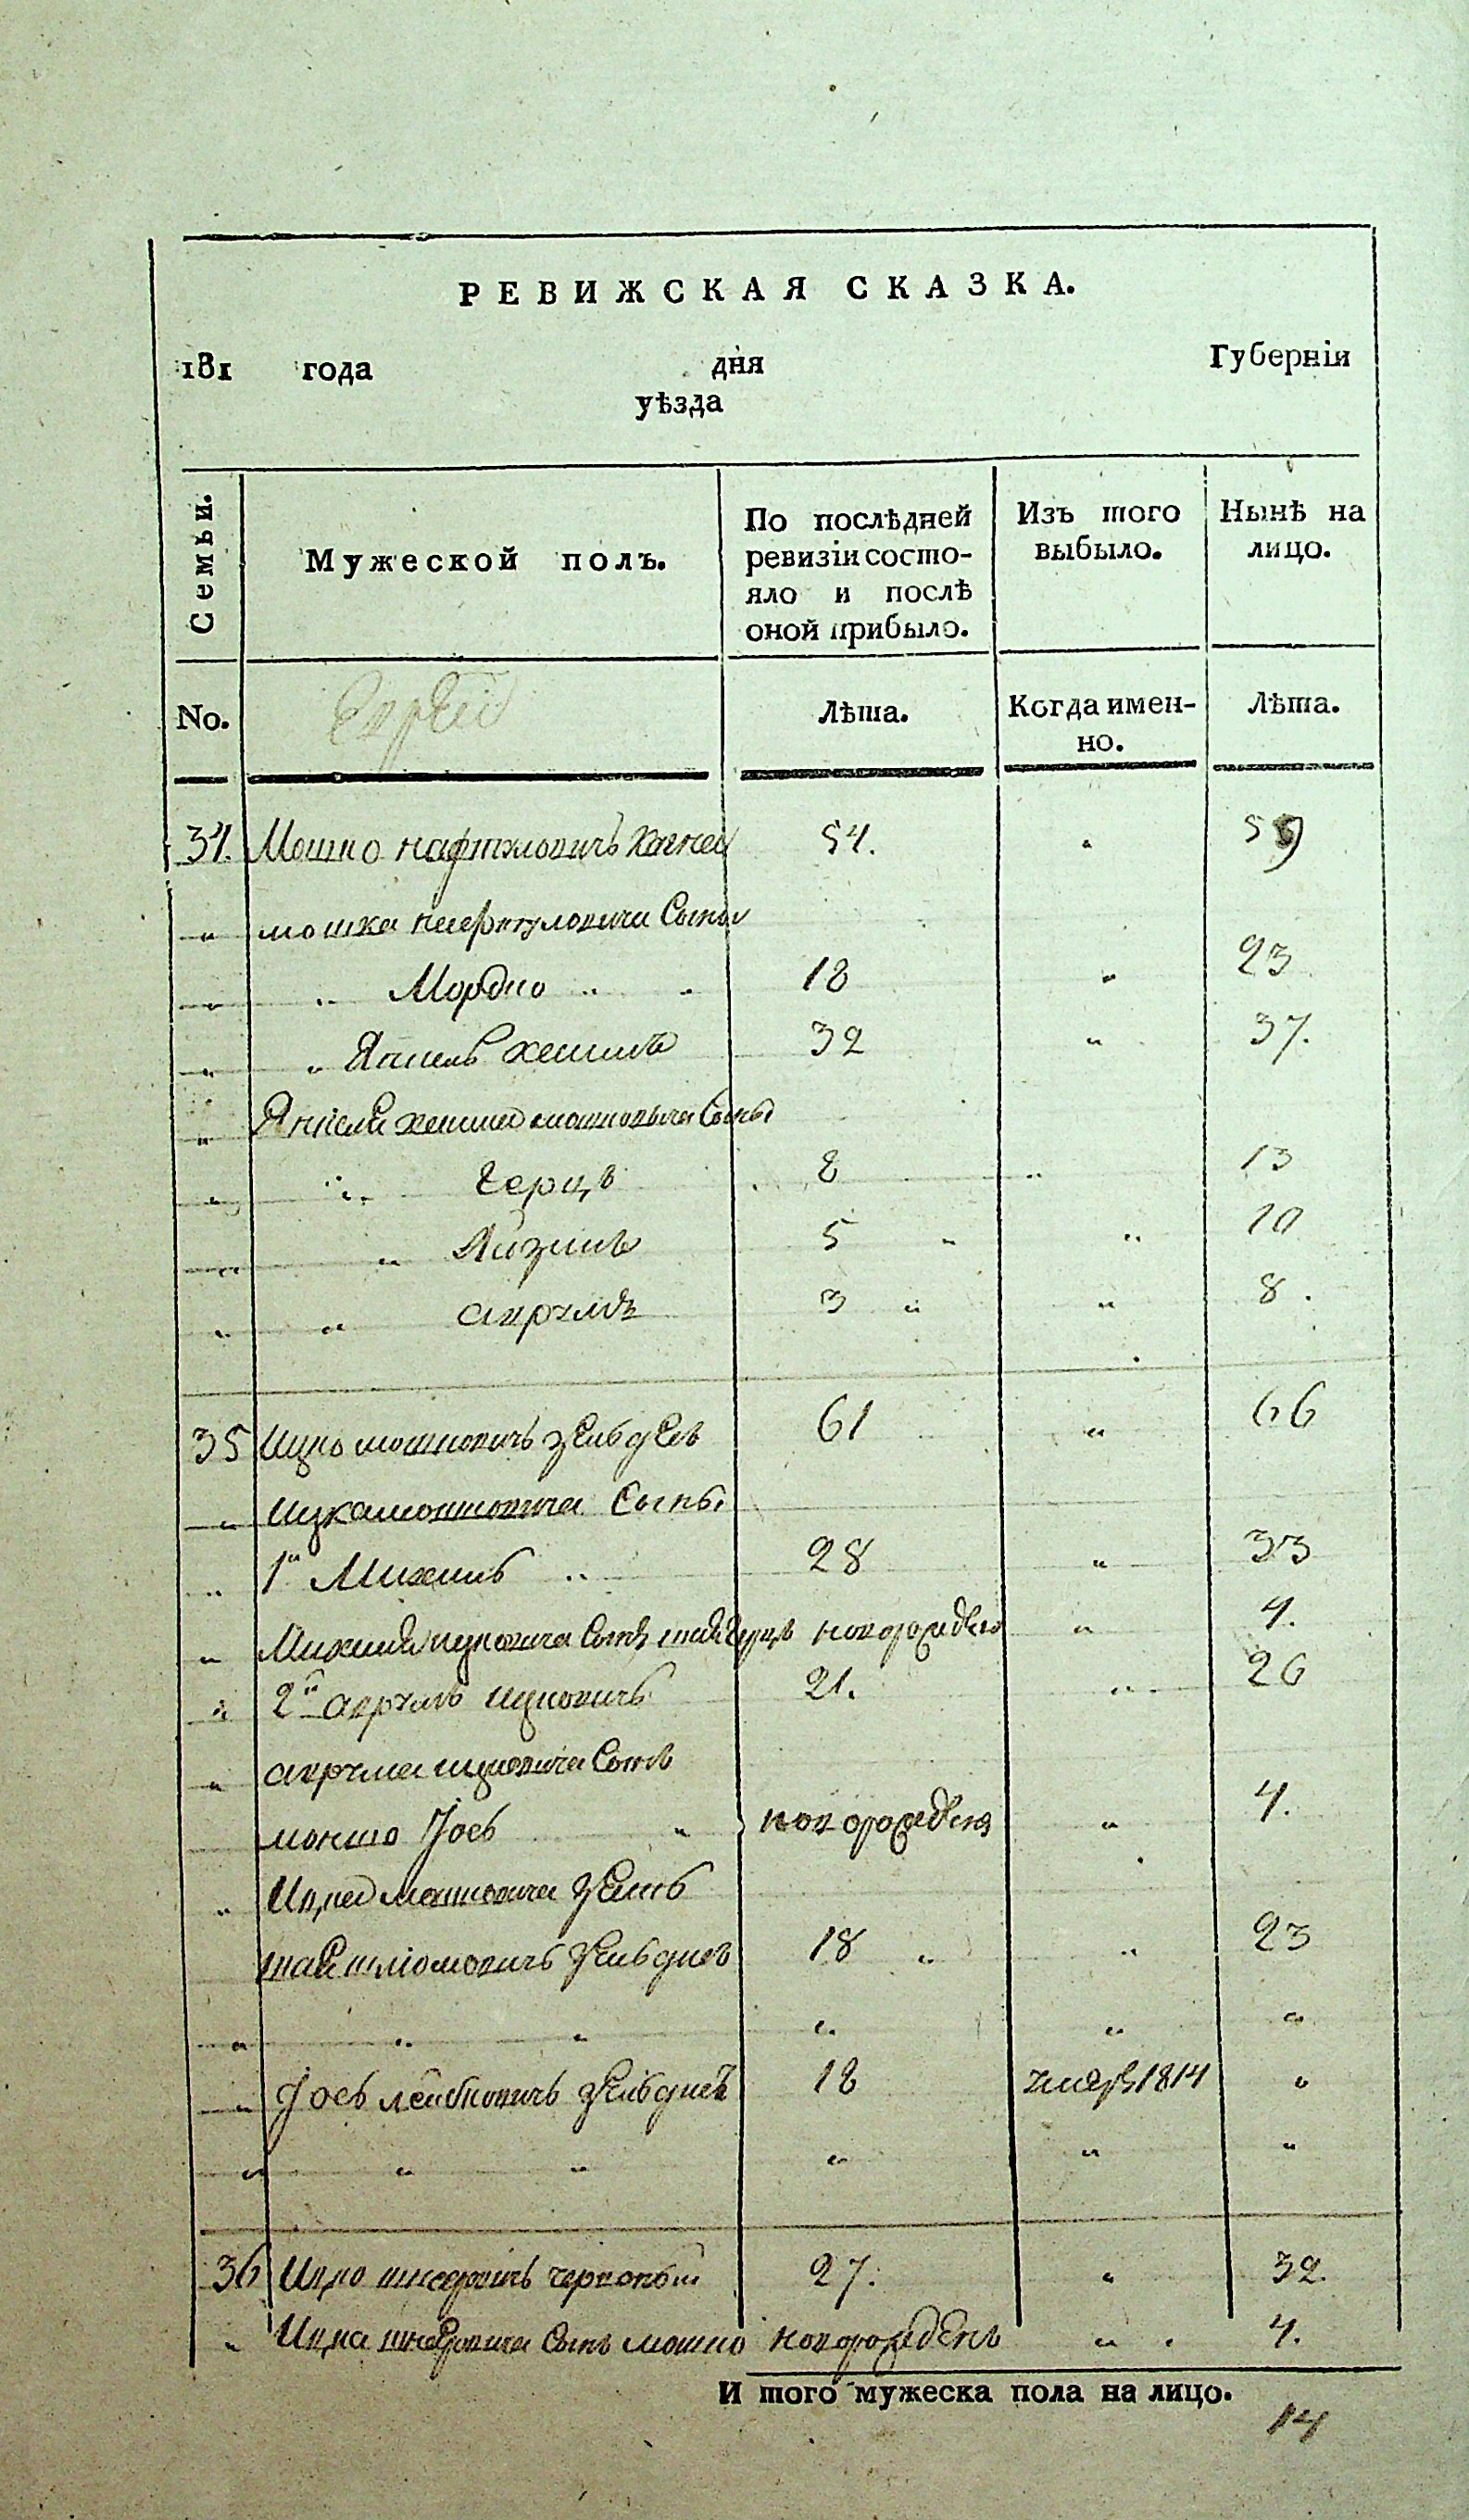 РЕВИЖСКАЯ СКАЗКА.
181 года дня Губерніи
уѣзда
Семьи.
Мужеской полъ.
По послѣдней ревизіи состояло и послѣ оной прибыло.
Изъ того выбыло.
Нынѣ на лицо.
No.
Евреи
Лѣта.
Когда именно.
Лѣта.
34. Мошко нафтуловичъ 54. " 59
" мошка нафтуловича Сыны
" " Мордко " " 18 " 23
" " Янкель хешель 32 " 37.
" Янкеля хешеля мошковича Сыны
" " Герцъ 8 " 13
" " Айзикъ 5 " " 10
" " аврумъ 3 " " 8.
35 Ицко мошковичъ 61 " 66
" Ицка мошковича Сыны
" 1й Михель " 28 " 33
" Михеля ицковича Сынъ новорожденъ " 4.
" 2й аврумъ ицковичъ 21. " 26
" аврума ицковича Сынъ
мошко Іось " новорожденъ " 4.
" Ицка мошковича Зять
шліомовичъ 18 " " 23
" " " " " "
" Іось лейбовичъ 18 1814 "
" " " " " "
36 Ицко 27. " 32.
" Ицка Сынъ мошко новорожденъ " 4.
И того мужеска пола на лицо.
14